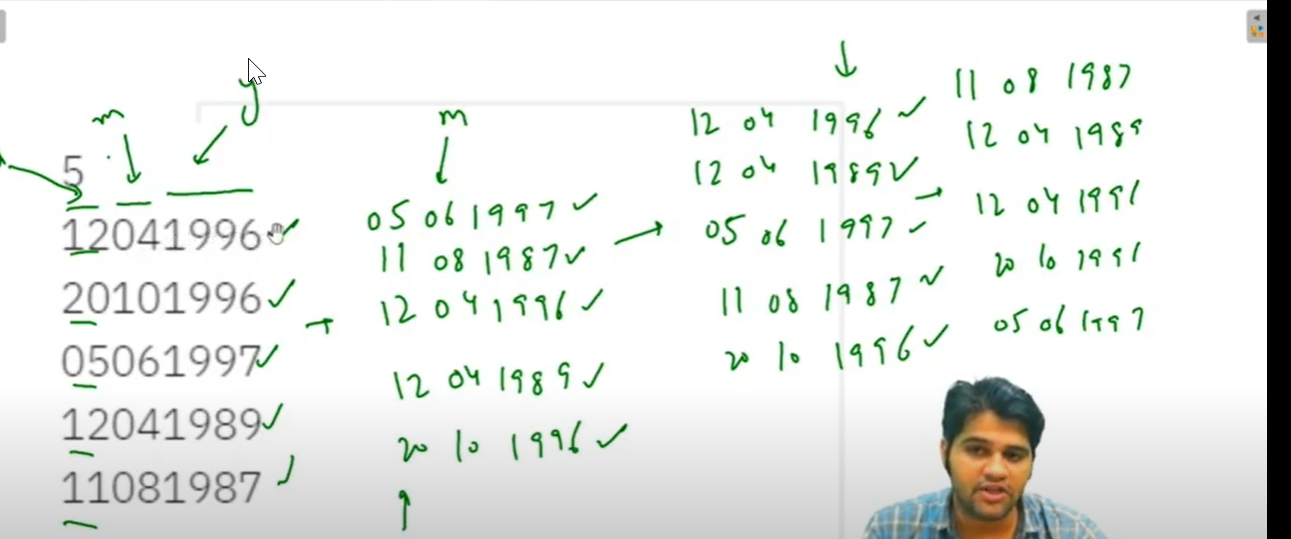 m
y
5
12041996
20101996
05061997
12041989
11081987
m
05 06 1997
11 08 1987
12 04 1996
12 04 1989
20 10 1996
12 04 1996
12 04 1989
05 06 1997
11 08 1987
20 10 1996
11 08 1987
12 04 1989
12 04 1996
20 10 1996
05 06 1997